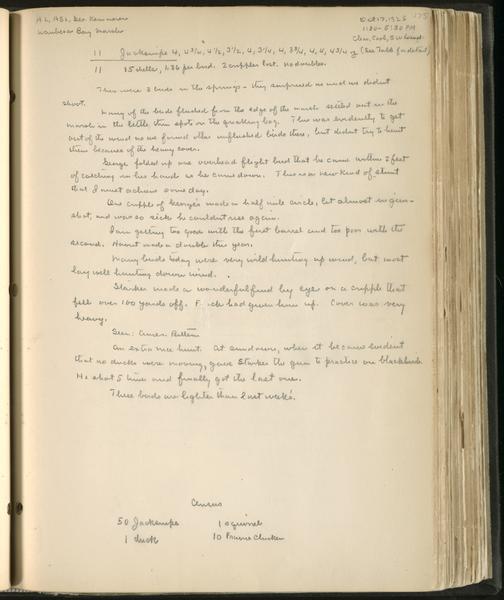 A.L, ASL, Geo. Kammerer Oct 17, 1925 175
Waubesa Bay Marsh 1:30-5:30 PM
Clear, Cool, SW
11 Jacksnipe 4, 4 3/4, 4 1/2, 3 1/2, 4, 3 1/4, 4, 3 3/4, 4, 4, 4 3/4 oz (See Table for detail)
11 15 shells, 1.36 per bird. 2 cripples lost. No doubles.
There were 3 birds in the springs - they surprised us and we didn't
shoot.
Many of the birds flushed from the edge of the marsh settled out in the
marsh in the little thin spots or the quaking bog. This was evidently to get
out of the wind as we found other unflushed birds there, but didn't try to hunt
them because of the heavy cover.
George folded up one overhead flight bird that he came within 2 feet
of catching in his hands as he came down. This is a new kind of stunt
that I must achieve some day.
One cripple of George's made a half mile circle, lit almost in gun-
shot, and was so sick he couldn't rise again.
I am getting too good with the first barrel and too poor with the
second. Haven't made a double this year.
Many birds today were very wild hunting up wind, but most
lay well hunting down wind.
Starker made a wonderful find by eye on a cripple that
fell over 100 yards off. had given him up. Cover was very
heavy.
Seen: Amer. Bittern
An extra nice hunt. At sundown, when it became evident
that no ducks were moving, gave Starker the gun to practice on blackbirds.
He shot 5 times and finally got the last one.
These birds are lighter than last week's.
Census
50 Jacksnipe 1 squirrel
1 duck 10 Prairie Chicken